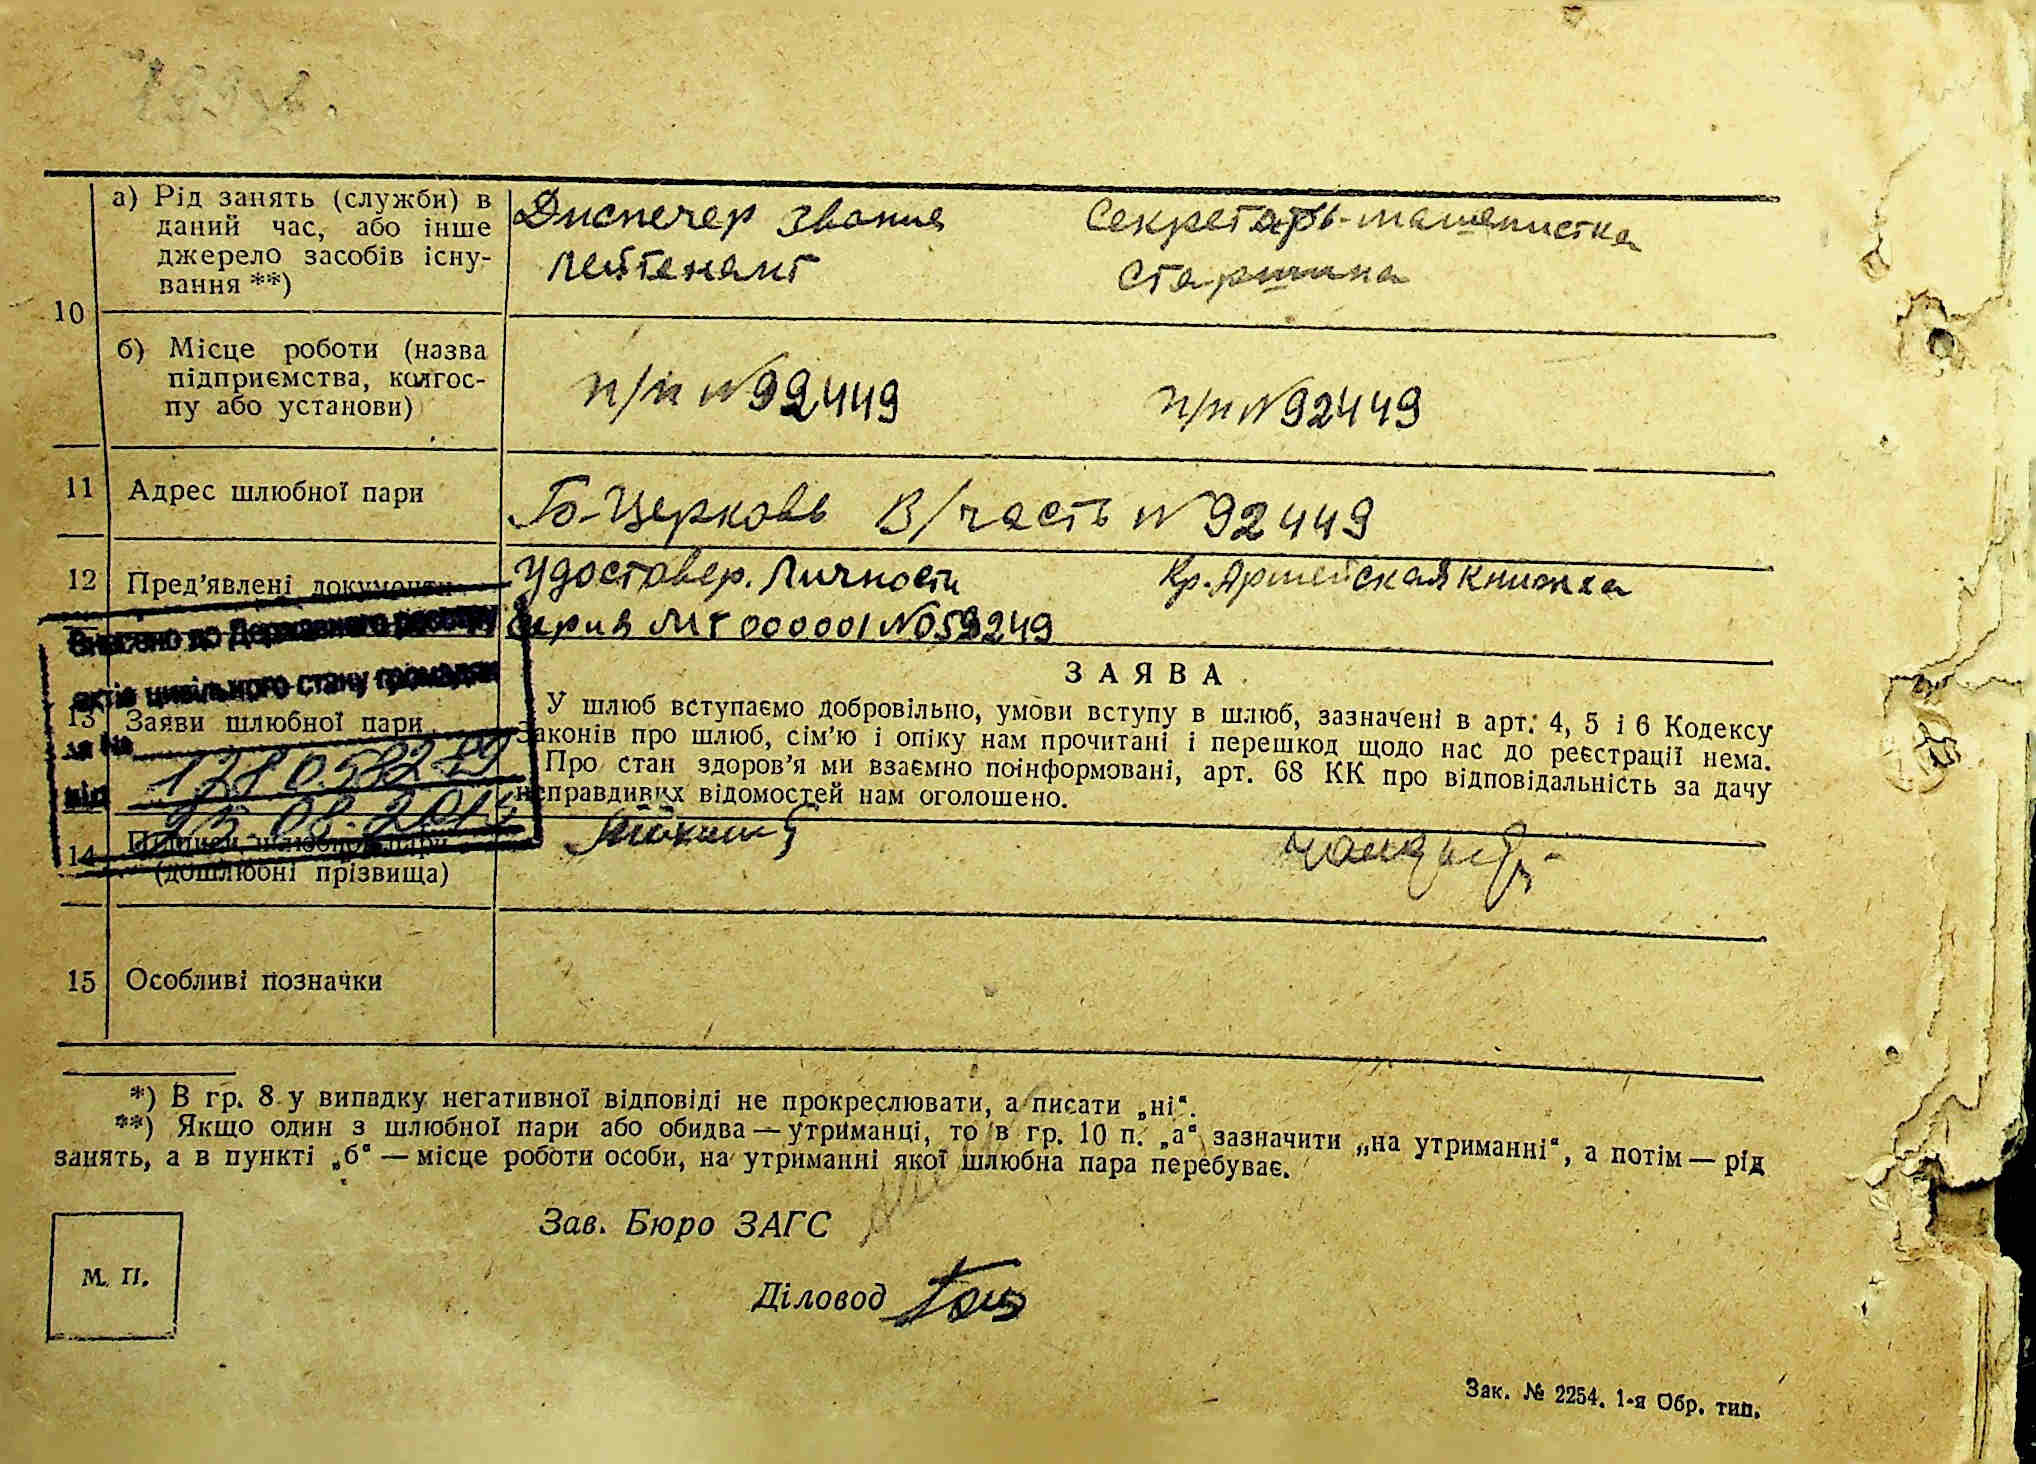 10
а) Рід занять (служби) в
даний час, або інше
джерело засобів існу-
вання **)
Диспечер звание
лейтенант
Секретарь-машинистка
Старшина
б) Місце роботи (назва
підприємства, колгос-
пу або установи)
п/п №92449
п/п №92449
11 Адрес шлюбної пари
Б-Церковь В/часть №92449
12 Пред’явлені документи
Удостовер. Личности
серия МГ 000001 №059249
Кр. Армейская книжка
Внесено до Державного реєстру
актів цивільного стану громадян
за №
від
ЗАЯВА
13 Заяви шлюбної пари
У шлюб вступаємо добровільно, умови вступу в шлюб, зазначені в арт. 4, 5 і 6 Кодексу
Законів про шлюб, сім’ю і опіку нам прочитані і перешкод щодо нас до реєстрації нема.
Про стан здоров’я ми взаємно поінформовані, арт. 68 КК про відповідальність за дачу
неправдивих відомостей нам оголошено.
14 Підписи шлюбної пари
(дошлюбні прізвища)
15 Особливі позначки
*) В гр. 8 у випадку негативної відповіді не прокреслювати, а писати „ні“.
**) Якщо один з шлюбної пари або обидва — утриманці, то в гр. 10 п. „а“ зазначити „на утриманні“, а потім — рід
занять, а в пункті „б“ — місце роботи особи, на утриманні якої шлюбна пара перебуває.
Зав. Бюро ЗАГС
М. П.
Діловод
Зак. № 2254. 1-я Обр. тип.